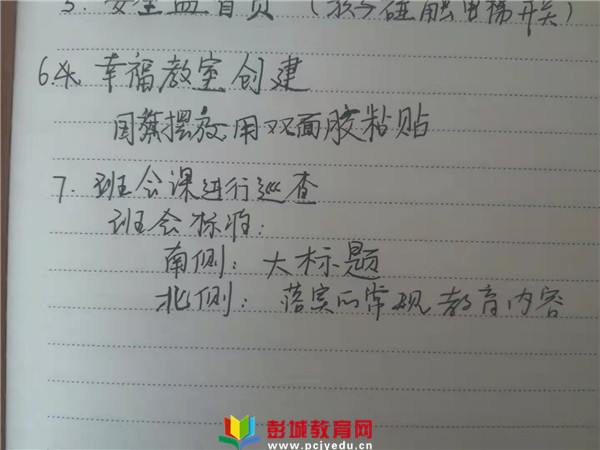 5. 安全 碰触电梯开关)
6. 幸福教室创建
摆放用双面胶粘贴
7. 班会课进行巡查
班会标准:
南侧: 大标题
北侧: 落实的常规教育内容
彭城教育网
www.pcjyedu.cn